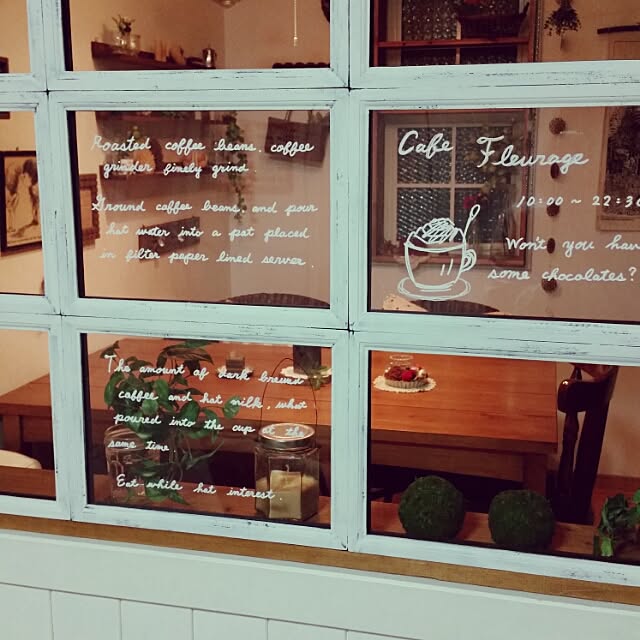 Roasted coffee beans, coffee
grinder finely grind.
Ground coffee beans, and pour
hot water into a pot placed
in filter paper lined server.
The amount of dark brewed
coffee and hot milk, what
poured into the cup at the
same time.
Eat while hot interest.
Cafe Fleurage
10:00 ~ 22:30
Won't you hav
some chocolates?